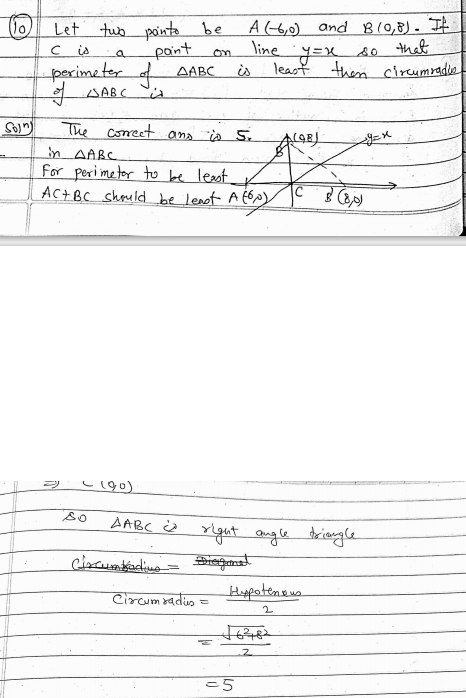 (10) Let two points be A(-6,0) and B(0,8). If
C is a point on line y=x so that
perimeter of △ABC is least then circumradius
of △ABC is
Soln) The correct ans is 5.
(0,8)
B
y=x
in △ABC
For perimeter to be least
AC+BC should be least
A(-6,0)
C
B' (8,0)
⇒ C (0,0)
so △ABC is right angle triangle
Circumradius =
Circumradius = Hypotenous
2
= √6²+8²
2
= 5